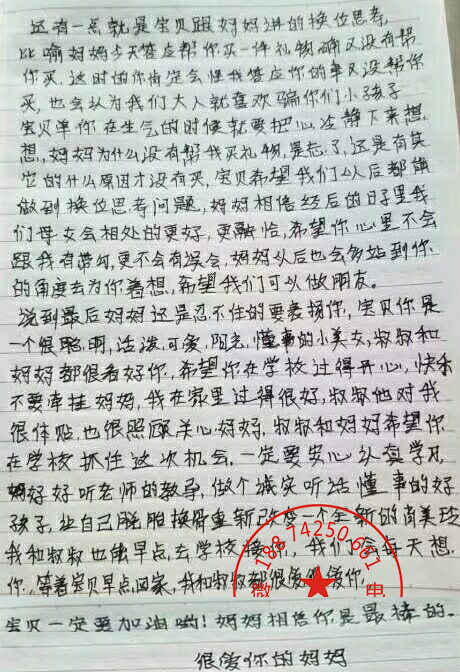 还有一点就是宝贝跟妈妈讲的换位思考，
比喻妈妈今天答应帮你买一件礼物确又没有帮
你买。这时的你肯定会怪我答应你的事又没帮你
买，也会认为我们大人就喜欢骗你们小孩子
宝贝单你在生气的时候就要把心冷静下来想
想，妈妈为什么没有帮我买礼物，是忘了，还是有其
它的什么原因才没有买，宝贝希望我们以后都能
做到换位思考问题，妈妈相信经后的日子里我
们母女会相处的更好，更融恰，希望你心里不会
跟我有带勾，更不会有误会，妈妈以后也会多站到你
的角度去为你着想，希望我们可以做朋友。
说到最后妈妈还是忍不住的要表扬你，宝贝你是
一个很聪明，活泼，可爱，阳光，懂事的小美女，叔叔和
妈妈都很看好你，希望你在学校过得开心，快乐
不要牵挂妈妈，我在家里过得很好，叔叔他对我
很体贴，也很照顾关心妈妈，叔叔和妈妈希望你
在学校抓住这次机会，一定要安心认真学习
好好听老师的教导，做个诚实听话懂事的好
孩子，让自己脱胎换骨重新改变一个全新的肖美玲
我和叔叔也能早点去学校接你，我们会每天想
你，等着宝贝早点回家，我和叔叔都很爱很爱你
宝贝一定要加油哟！妈妈相信你是最棒的。
很爱你的妈妈
188 74250 661
微 电